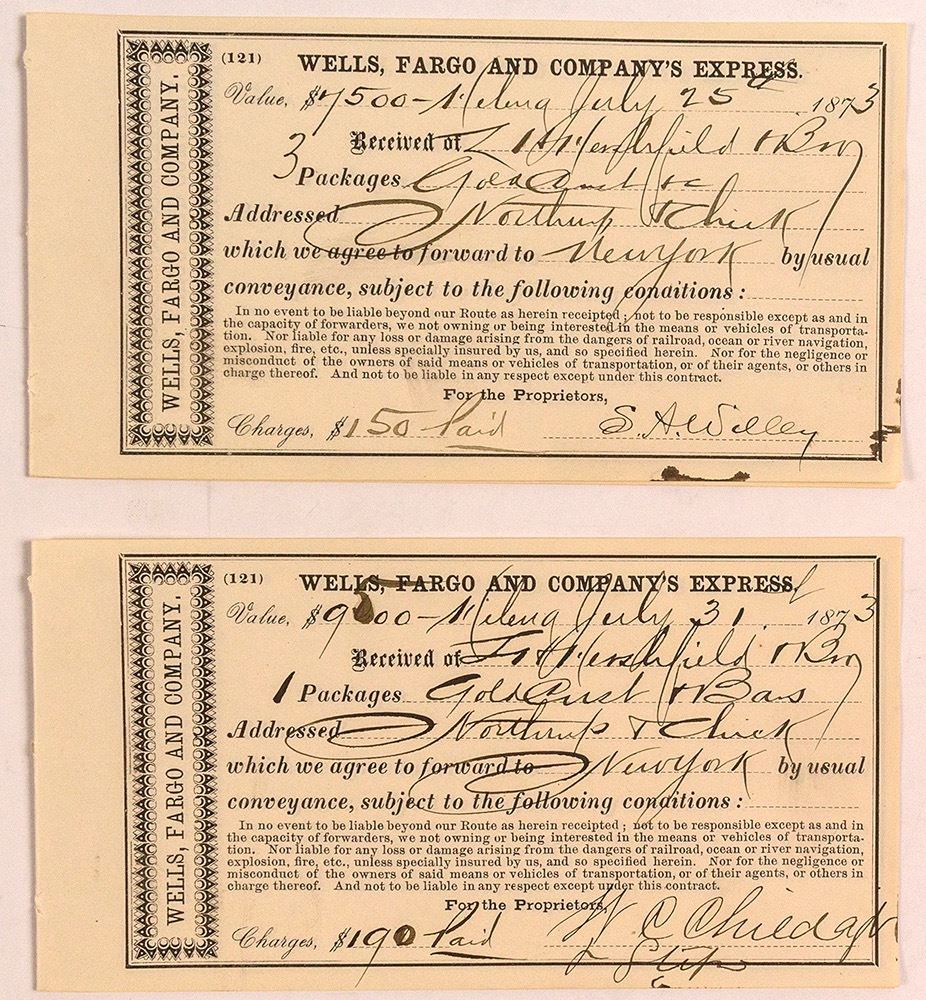 WELLS, FARGO AND COMPANY.
(121) WELLS, FARGO AND COMPANY'S EXPRESS.
Value, $7500- Helena July 25th 1873
Received of L H Hershfield & Bro
3 Packages Gold Dust &c
Addressed Northrup & Chick
which we agree to forward to New York by usual
conveyance, subject to the following conditions:
In no event to be liable beyond our Route as herein receipted; not to be responsible except as and in
the capacity of forwarders, we not owning or being interested in the means or vehicles of transporta-
tion. Nor liable for any loss or damage arising from the dangers of railroad, ocean or river navigation,
explosion, fire, etc., unless specially insured by us, and so specified herein. Nor for the negligence or
misconduct of the owners of said means or vehicles of transportation, or of their agents, or others in
charge thereof. And not to be liable in any respect except under this contract.
For the Proprietors,
Charges, $150 Paid S. A. Willey
WELLS, FARGO AND COMPANY.
(121) WELLS, FARGO AND COMPANY'S EXPRESS.
Value, $9500- Helena July 31st 1873
Received of L H Hershfield & Bro
1 Packages Gold Dust & Bars
Addressed Northrup & Chick
which we agree to forward to New York by usual
conveyance, subject to the following conditions:
In no event to be liable beyond our Route as herein receipted; not to be responsible except as and in
the capacity of forwarders, we not owning or being interested in the means or vehicles of transporta-
tion. Nor liable for any loss or damage arising from the dangers of railroad, ocean or river navigation,
explosion, fire, etc., unless specially insured by us, and so specified herein. Nor for the negligence or
misconduct of the owners of said means or vehicles of transportation, or of their agents, or others in
charge thereof. And not to be liable in any respect except under this contract.
For the Proprietors,
Charges, $190 Paid W C Child agt